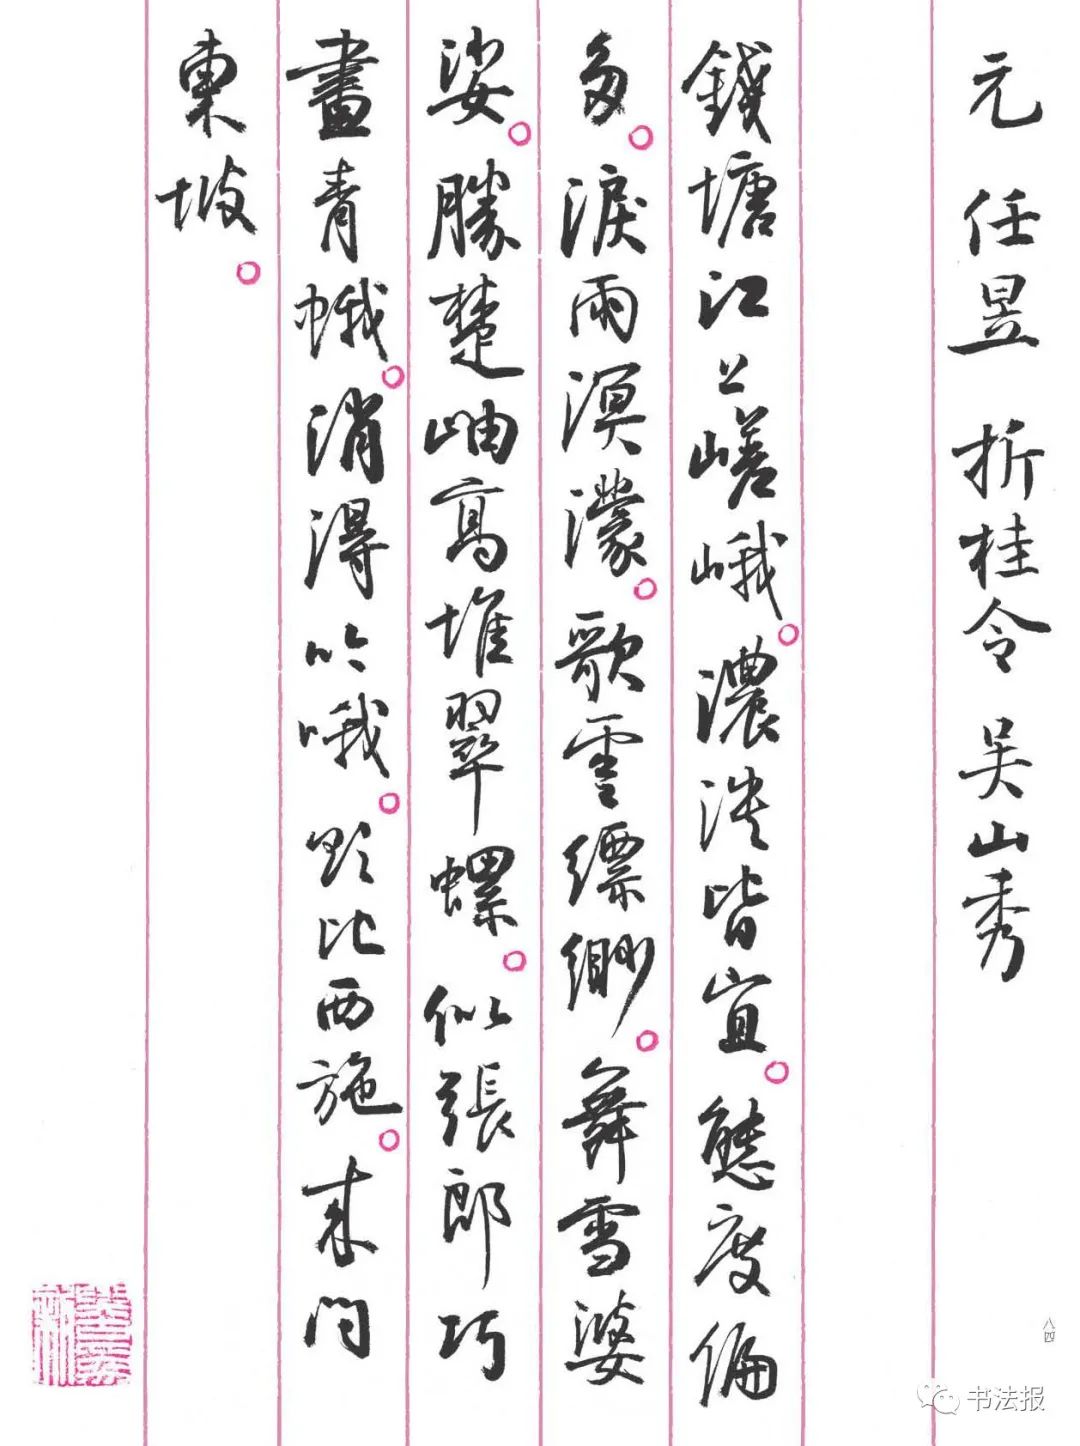 元 任昱 折桂令 吴山秀
錢塘江上嵯峨。濃淡皆宜。態度偏
多。淚雨溟濛。歌雲縹緲。舞雪婆
娑。勝楚岫高堆翠螺。似張郎巧
畫青蛾。消得吟哦。欲比西施。來問
東坡。
八四
书法报